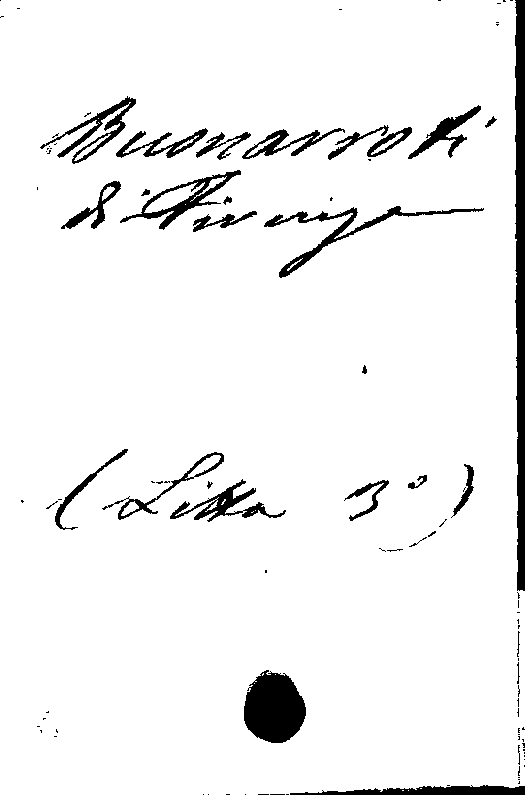 Buonarroti
di Firenze
(Litta 3º)